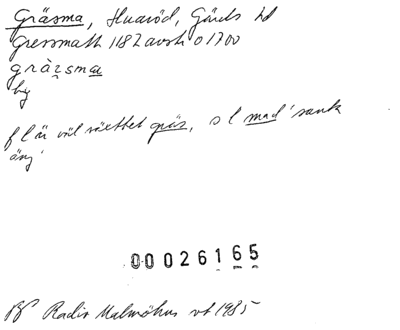 Gräsma, Huaröd, Gärds hd
Gressmath 1182 avskr o 1700
grà̱zsma
by
f l är väl växttet gräs, s l mad 'sank
äng'
00026165
BP Radio Malmöhus vt 1985